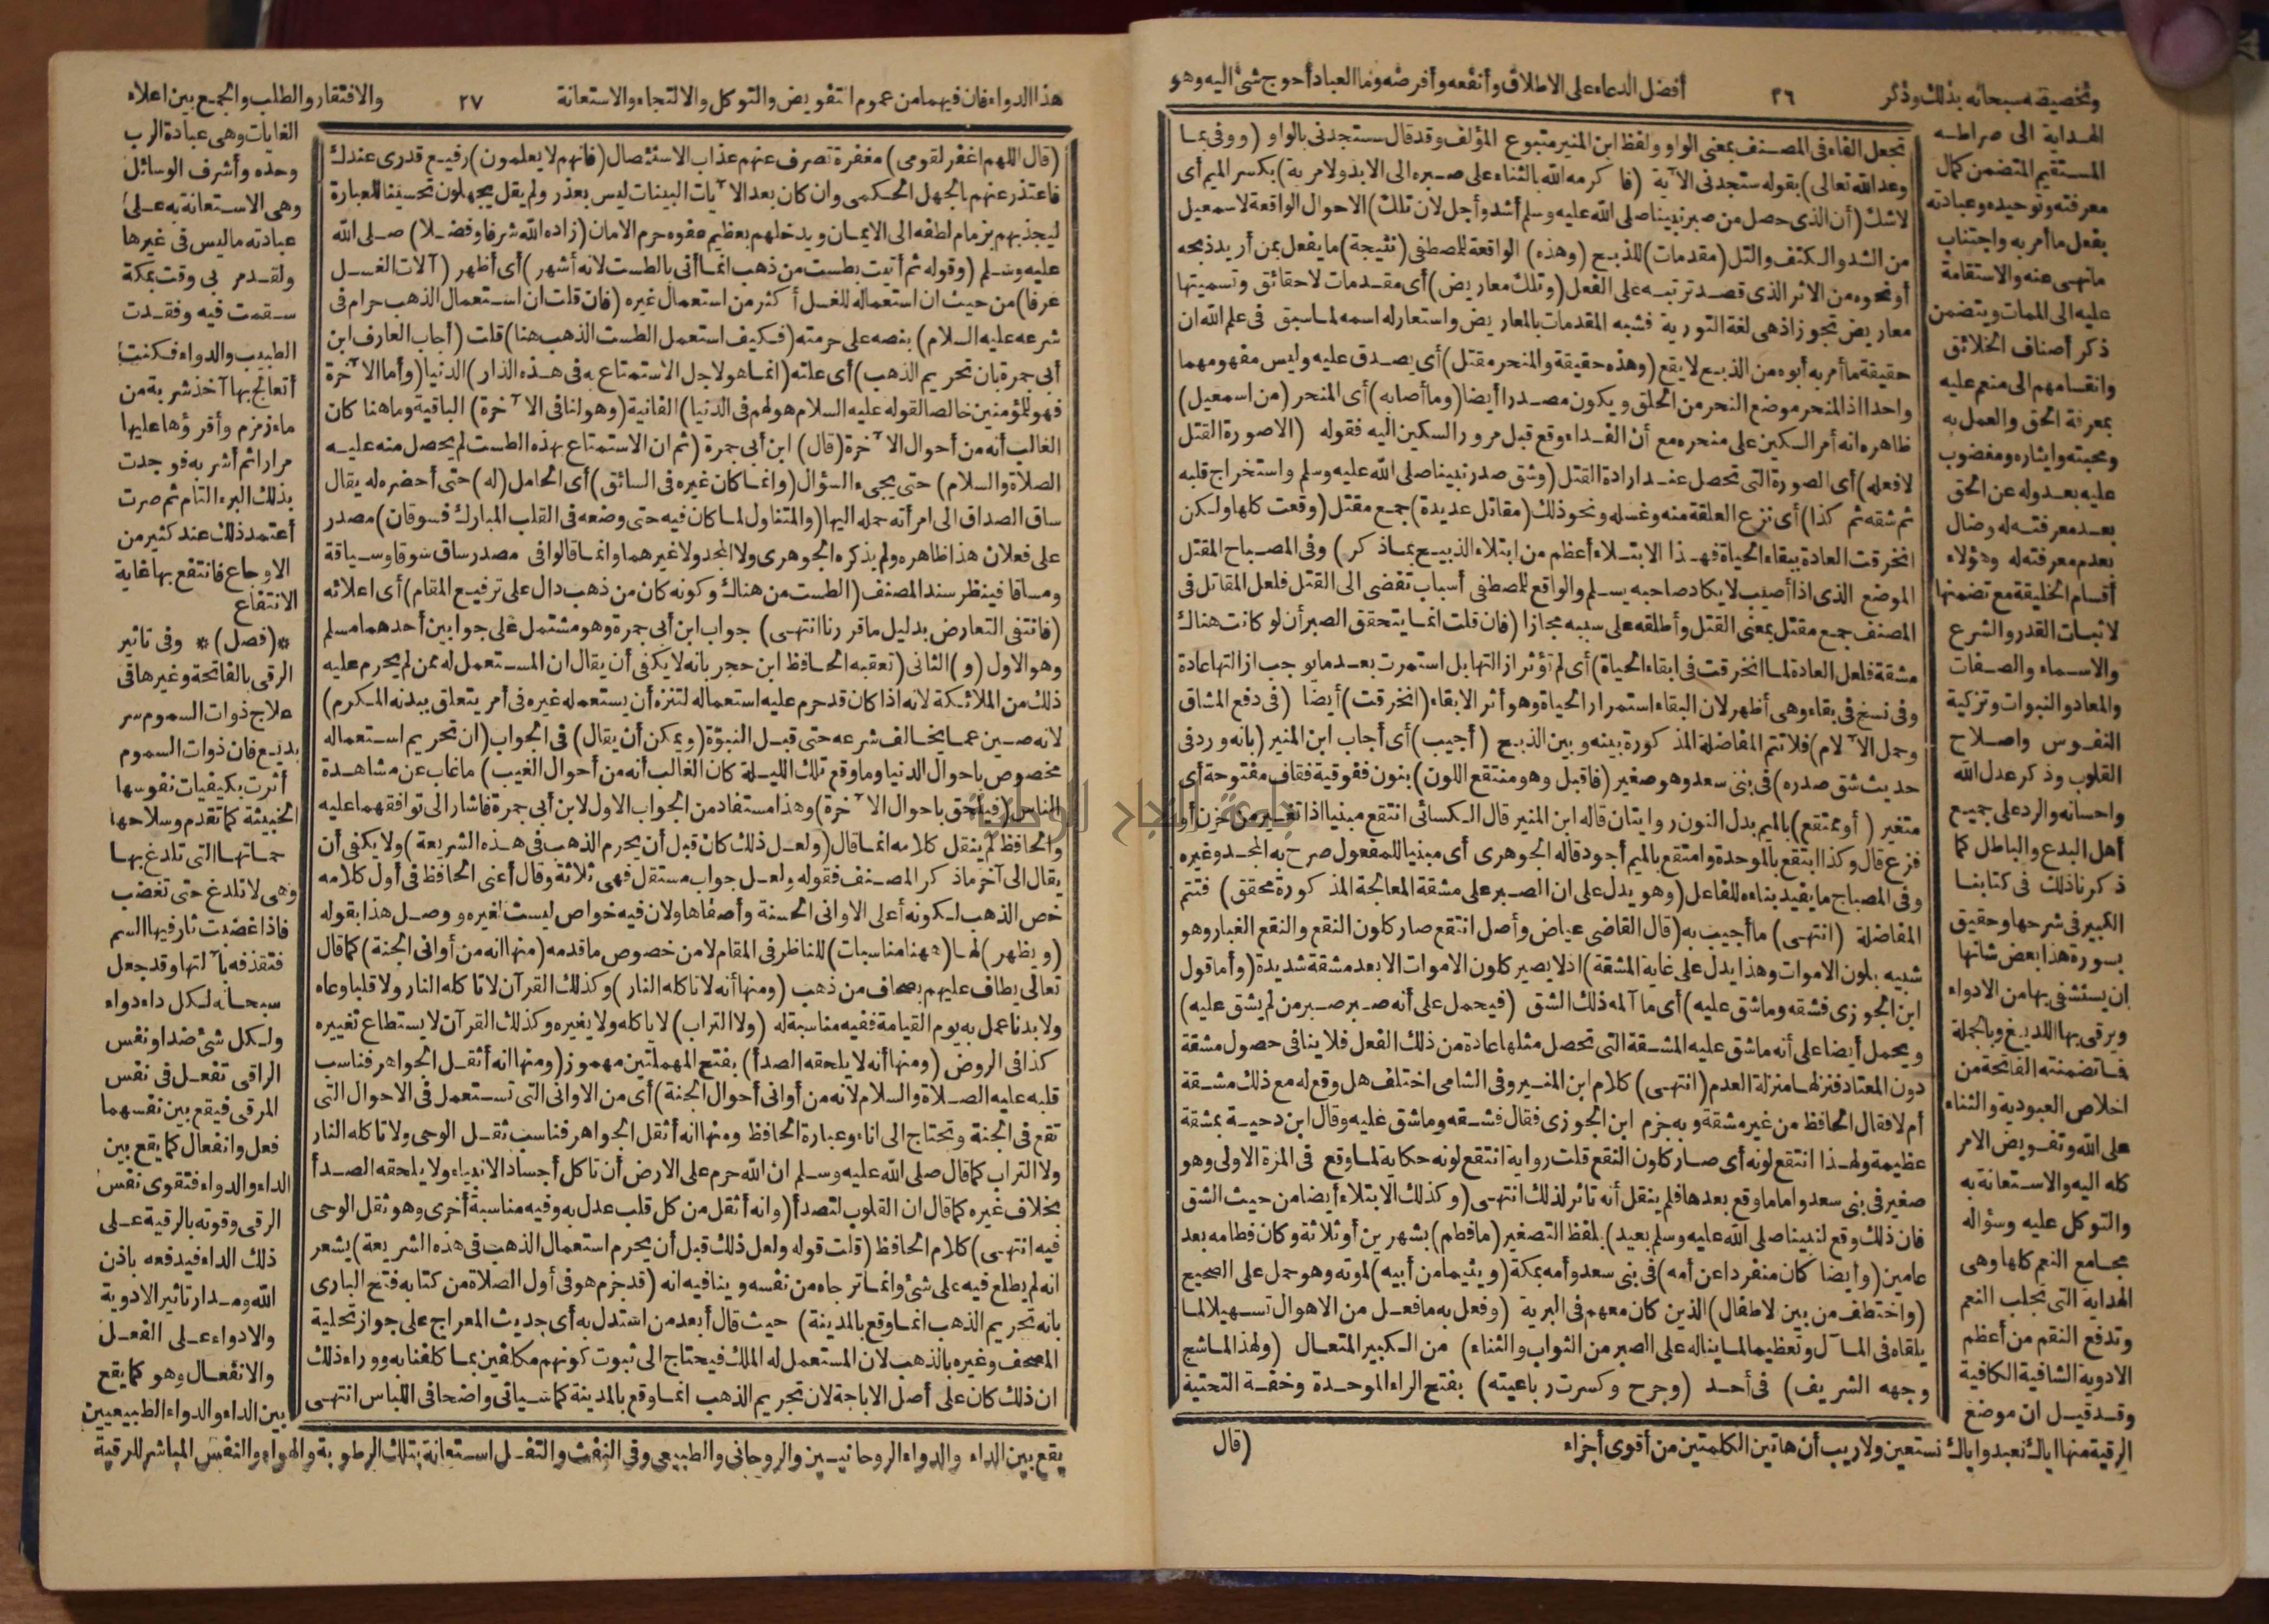 وتخصيصه سبحانه بذلك وذكر ٣٦ أفضل الدعاء على الاطلاق وأنفعه وأفرضه وما العباد أحوج شئ اليه وهو
الهداية الى صراطه
المستقيم المتضمن كمال
معرفته وتوحيده وعبادته
بفعل ما أمر به واجتناب
ما نهى عنه والاستقامة
عليه الى الممات ويتضمن
ذكر أصناف الخلائق
وانقسامهم الى منعم عليه
بمعرفة الحق والعمل به
ومحبته وايثاره ومغضوب
عليه بعدوله عن الحق
بعد معرفته له وضال
بعدم معرفته له وهؤلاء
أقسام الخليقة مع تضمنها
لاثبات القدر والشرع
والاسماء والصفات
والمعاد والنبوات وتزكية
النفوس واصلاح
القلوب وذكر عدل الله
واحسانه والرد على جميع
أهل البدع والباطل كما
ذكرنا ذلك فى كتابنا
الكبير فى شرحها وحقيق
بسورة هذا بعض شانها
ان يستشفى بها من الادواء
ويرقى بها اللديغ وبالجملة
فما تضمنته الفاتحة من
اخلاص العبودية والثناء
على الله وتفويض الامر
كله اليه والاستعانة به
والتوكل عليه وسؤاله
مجامع النعم كلها وهى
الهداية التى تجلب النعم
وتدفع النقم من أعظم
الادوية الشافية الكافية
وقد قيل ان موضع
الرقية منها اياك نعبد واياك نستعين ولا ريب أن هاتين الكلمتين من أقوى أجزاء
تجعل الفاء فى المصنف بمعنى الواو ولفظ ابن المنير متبوع المؤلف وقد قال ستجدنى بالواو (ووفى بما
وعد الله تعالى) بقوله ستجدنى الآية (فاكرمه الله بالثناء على صبره الى الابد ولا مرية) بكسر الميم أى
لا شك (أن الذى حصل من صبر نبينا صلى الله عليه وسلم أشد وأجل لان تلك) الاحوال الواقعة لاسمعيل
من الشد والكتف والتل (مقدمات) للذبح (وهذه) الواقعة للمصطفى (نتيجة) ما يفعل بمن أريد ذبحه
أو نحوه من الاثر الذى قصد ترتبه على الفعل (وتلك معاريض) أى مقدمات لا حقائق وتسميتها
معاريض تجوز اذ هى لغة التورية فشبه المقدمات بالمعاريض واستعار له اسمه لما سبق فى علم الله ان
حقيقة ما أمر به أبوه من الذبح لا يقع (وهذه حقيقة والمنحر مقتل) أى يصدق عليه وليس مفهومهما
واحدا اذ المنحر موضع النحر من الحلق ويكون مصدرا أيضا (وما أصابه) أى المنحر (من اسمعيل)
ظاهره انه أمر السكين على منحره مع أن الفداء وقع قبل مرور السكين اليه فقوله (الا صورة القتل
لا فعله) أى الصورة التى تحصل عند ارادة القتل (وشق صدر نبينا صلى الله عليه وسلم واستخراج قلبه
ثم شقه ثم كذا) أى نزع العلقة منه وغسله ونحو ذلك (مقاتل عديدة) جمع مقتل (وقعت كلها ولكن
انخرقت العادة ببقاء الحياة فهذا الابتلاء أعظم من ابتلاء الذبيح بما ذكر) وفى المصباح المقتل
الموضع الذى اذا أصيب لا يكاد صاحبه يسلم والواقع للمصطفى أسباب تفضى الى القتل فلعل المقاتل فى
المصنف جمع مقتل بمعنى القتل وأطلقه على سببه مجازا (فان قلت انما يتحقق الصبر أن لو كانت هناك
مشقة فلعل العادة لما انخرقت فى ابقاء الحياة) أى لم تؤثر ازالتها بل استمرت بعد ما يوجب ازالتها عادة
وفى نسخ فى بقاء وهى أظهر لان البقاء استمرار الحياة وهو أثر الابقاء (انخرقت) أيضا (فى دفع المشاق
وحمل الآلام) فلا تتم المفاضلة المذكورة بينه وبين الذبيح (أجيب) أى أجاب ابن المنير (بانه ورد فى
حديث شق صدره) فى بنى سعد وهو صغير (فاقبل وهو منتقع اللون) بنون ففوقية فقاف مفتوحة أى
متغير (أو ممتقع) بالميم بدل النون روايتان قاله ابن المنير قال الكسائى انتقع مبنيا اذا تغير من حزن أو
فزع قال وكذا ابتقع بالموحدة وامتقع بالميم أجود قاله الجوهرى أى مبنيا للمفعول صرح به المجد وغيره
وفى المصباح ما يفيد بناءه للفاعل (وهو يدل على ان الصبر على مشقة المعالجة المذكورة محقق) فتتم
المفاضلة (انتهى) ما أجيب به (قال القاضى عياض وأصل انتقع صار كلون النقع والنقع الغبار وهو
شبيه بلون الاموات وهذا يدل على غاية المشقة) اذ لا يصير كلون الاموات الا بعد مشقة شديدة (وأما قول
ابن الجوزى فشقه وما شق عليه) أى ما آلمه ذلك الشق (فيحمل على أنه صبر صبر من لم يشق عليه)
ويحمل أيضا على أنه ما شق عليه المشقة التى تحصل مثلها عادة من ذلك الفعل فلا ينافى حصول مشقة
دون المعتاد فنزلها منزلة العدم (انتهى) كلام ابن المنير وفى الشامى اختلف هل وقع له مع ذلك مشقة
أم لا فقال الحافظ من غير مشقة وبه جزم ابن الجوزى فقال فشقه وما شق عليه وقال ابن دحية بمشقة
عظيمة ولهذا انتقع لونه أى صار كلون النقع قلت رواية انتقع لونه حكاية لما وقع فى المرة الاولى وهو
صغير فى بنى سعد واما ما وقع بعدها فلم ينقل أنه تاثر لذلك انتهى (وكذلك الابتلاء أيضا من حيث الشق
فان ذلك وقع لنبينا صلى الله عليه وسلم بعيد) بلفظ التصغير (ما فطم) بشهرين أو ثلاثة وكان فطامه بعد
عامين (وأيضا كان منفردا عن أمه) فى بنى سعد وأمه بمكة (ويتيما من أبيه) لموته وهو حمل على الصحيح
(واختطف من بين لاطفال) الذين كان معهم فى البرية (وفعل به ما فعل من الاهوال تسهيلا لما
يلقاه فى المآل وتعظيما لما يناله على الصبر من الثواب والثناء) من الكبير المتعال (ولهذا لما شج
وجهه الشريف) فى أحد (وجرح وكسرت رباعيته) بفتح الراء الموحدة وخفة التحتية
(قال
هذا الدواء فان فيهما من عموم التفويض والتوكل والالتجاء والاستعانة ٢٧ والافتقار والطلب والجمع بين اعلاء
(قال اللهم اغفر لقومى) مغفرة تصرف عنهم عذاب الاستئصال (فانهم لا يعلمون) رفيع قدرى عندك
فاعتذر عنهم بالجهل الحكمى وان كان بعد الآيات البينات ليس بعذر ولم يقل يجهلون تحسينا للعبارة
ليجذبهم بزمام لطفه الى الايمان ويدخلهم بعظيم عفوه حرم الامان (زاده الله شرفا وفضلا) صلى الله
عليه وسلم (وقوله ثم أتيت بطست من ذهب انما أتى بالطست لانه أشهر) أى أظهر (آلات الغسل
عرفا) من حيث ان استعماله للغسل أكثر من استعمال غيره (فان قلت ان استعمال الذهب حرام فى
شرعه عليه السلام) بنصه على حرمته (فكيف استعمل الطست الذهب هنا) قلت (أجاب العارف ابن
أبى جمرة بان تحريم الذهب) أى علته (انما هو لاجل الاستمتاع به فى هذه الدار) الدنيا (وأما الآخرة
فهو للمؤمنين خالصا لقوله عليه السلام هو لهم فى الدنيا) الفانية (وهو لنا فى الآخرة) الباقية وما هنا كان
الغالب أنه من أحوال الآخرة (قال) ابن أبى جمرة (ثم ان الاستمتاع بهذه الطست لم يحصل منه عليه
الصلاة والسلام) حتى يجىء السؤال (وانما كان غيره فى السائق) أى الحامل (له) حتى أحضره له يقال
ساق الصداق الى امرأته حمله اليها (والمتناول لما كان فيه حتى وضعه فى القلب المبارك فسوقان) مصدر
على فعلان هذا ظاهره ولم يذكره الجوهرى ولا المجد ولا غيرهما وانما قالوا فى مصدر ساق سوقا وسياقة
ومساقا فينظر سند المصنف (الطست من هناك وكونه كان من ذهب دال على ترفيع المقام) أى اعلائه
(فانتفى التعارض بدليل ما قررنا انتهى) جواب ابن أبى جمرة وهو مشتمل على جوابين أحدهما مسلم
وهو الاول (و) الثانى (تعقبه الحافظ ابن حجر بانه لا يكفى أن يقال ان المستعمل له ممن لم يحرم عليه
ذلك من الملائكة لانه اذا كان قد حرم عليه استعماله لتنزه أن يستعمله غيره فى أمر يتعلق ببدنه المكرم)
لانه صين عما يخالف شرعه حتى قبل النبوّة (ويمكن أن يقال) فى الجواب (ان تحريم استعماله
مخصوص باحوال الدنيا وما وقع تلك الليلة كان الغالب أنه من أحوال الغيب) ما غاب عن مشاهدة
الناس (فيلحق باحوال الآخرة) وهذا مستفاد من الجواب الاول لابن أبى جمرة فاشار الى توافقهما عليه
والحافظ لم ينقل كلامه انما قال (ولعل ذلك كان قبل أن يحرم الذهب فى هذه الشريعة) ولا يكفى أن
يقال الى آخر ما ذكر المصنف فقوله ولعل جواب مستقل فهى ثلاثة وقال أعنى الحافظ فى أول كلامه
خص الذهب لكونه أعلى الاوانى الحسنة وأصفاها ولان فيه خواص ليست لغيره ووصل هذا بقوله
(ويظهر) لها (ههنا مناسبات) للناظر فى المقام لا من خصوص ما قدمه (منها انه من أوانى الجنة) كما قال
تعالى يطاف عليهم بصحاف من ذهب (ومنها أنه لا تاكله النار) وكذلك القرآن لا تاكله النار ولا قلبا وعاه
ولا بدنا عمل به يوم القيامة ففيه مناسبة له (ولا التراب) لا ياكله ولا يغيره وكذلك القرآن لا يستطاع تغييره
كذا فى الروض (ومنها أنه لا يلحقه الصدأ) بفتح المهملتين مهموز (ومنها انه أثقل الجواهر فناسب
قلبه عليه الصلاة والسلام لانه من أوانى أحوال الجنة) أى من الاوانى التى تستعمل فى الاحوال التى
تقع فى الجنة وتحتاج الى اناء وعبارة الحافظ ومنها انه أثقل الجواهر فناسب ثقل الوحى ولا تاكله النار
ولا التراب كما قال صلى الله عليه وسلم ان الله حرم على الارض أن تاكل أجساد الانبياء ولا يلحقه الصدأ
بخلاف غيره كما قال ان القلوب لتصدأ (وانه أثقل من كل قلب عدل به وفيه مناسبة أخرى وهو ثقل الوحى
فيه انتهى) كلام الحافظ (قلت قوله ولعل ذلك قبل أن يحرم استعمال الذهب فى هذه الشريعة) يشعر
انه لم يطلع فيه على شئ وانما ترجاه من نفسه وينافيه انه (قد جزم هو فى أول الصلاة من كتابه فتح البارى
بانه تحريم الذهب انما وقع بالمدينة) حيث قال أبعد من استدل به أى حديث المعراج على جواز تحلية
المصحف وغيره بالذهب لان المستعمل له الملك فيحتاج الى ثبوت كونهم مكلفين بما كلفنا به ووراء ذلك
ان ذلك كان على أصل الاباحة لان تحريم الذهب انما وقع بالمدينة كما سياتى واضحا فى اللباس انتهى
الغايات وهى عبادة الرب
وحده وأشرف الوسائل
وهى الاستعانة به على
عبادته ما ليس فى غيرها
ولقد مر بى وقت بمكة
سقمت فيه وفقدت
الطبيب والدواء فكنت
أتعالج بها آخذ شربة من
ماء زمزم وأقرؤها عليها
مرارا ثم أشربه فوجدت
بذلك البرء التام ثم صرت
أعتمد ذلك عند كثير من
الاوجاع فانتفع بها غاية
الانتفاع
*(فصل)* وفى تاثير
الرقى بالفاتحة وغيرها فى
علاج ذوات السموم سر
بديع فان ذوات السموم
أثرت بكيفيات نفوسها
الخبيثة كما تقدم وسلاحها
حماتها التى تلدغ بها
وهى لا تلدغ حتى تغضب
فاذا غضبت ثار فيها السم
فتقذفه بآلتها وقد جعل
سبحانه لكل داء دواء
ولكل شئ ضدا ونفس
الراقى تفعل فى نفس
المرقى فيقع بين نفسهما
فعل وانفعال كما يقع بين
الداء والدواء فتقوى نفس
الرقى وقوته بالرقية على
ذلك الداء فيدفعه باذن
الله ومدار تاثير الادوية
والادواء على الفعل
والانفعال وهو كما يقع
بين الداء والدواء الطبيعيين
يقع بين الداء والدواء الروحانيين والروحانى والطبيعى وفى النفث والتفل استعانة بتلك الرطوبة والهواء والنفس المباشر للرقية
جامعة النجاح الوطنية